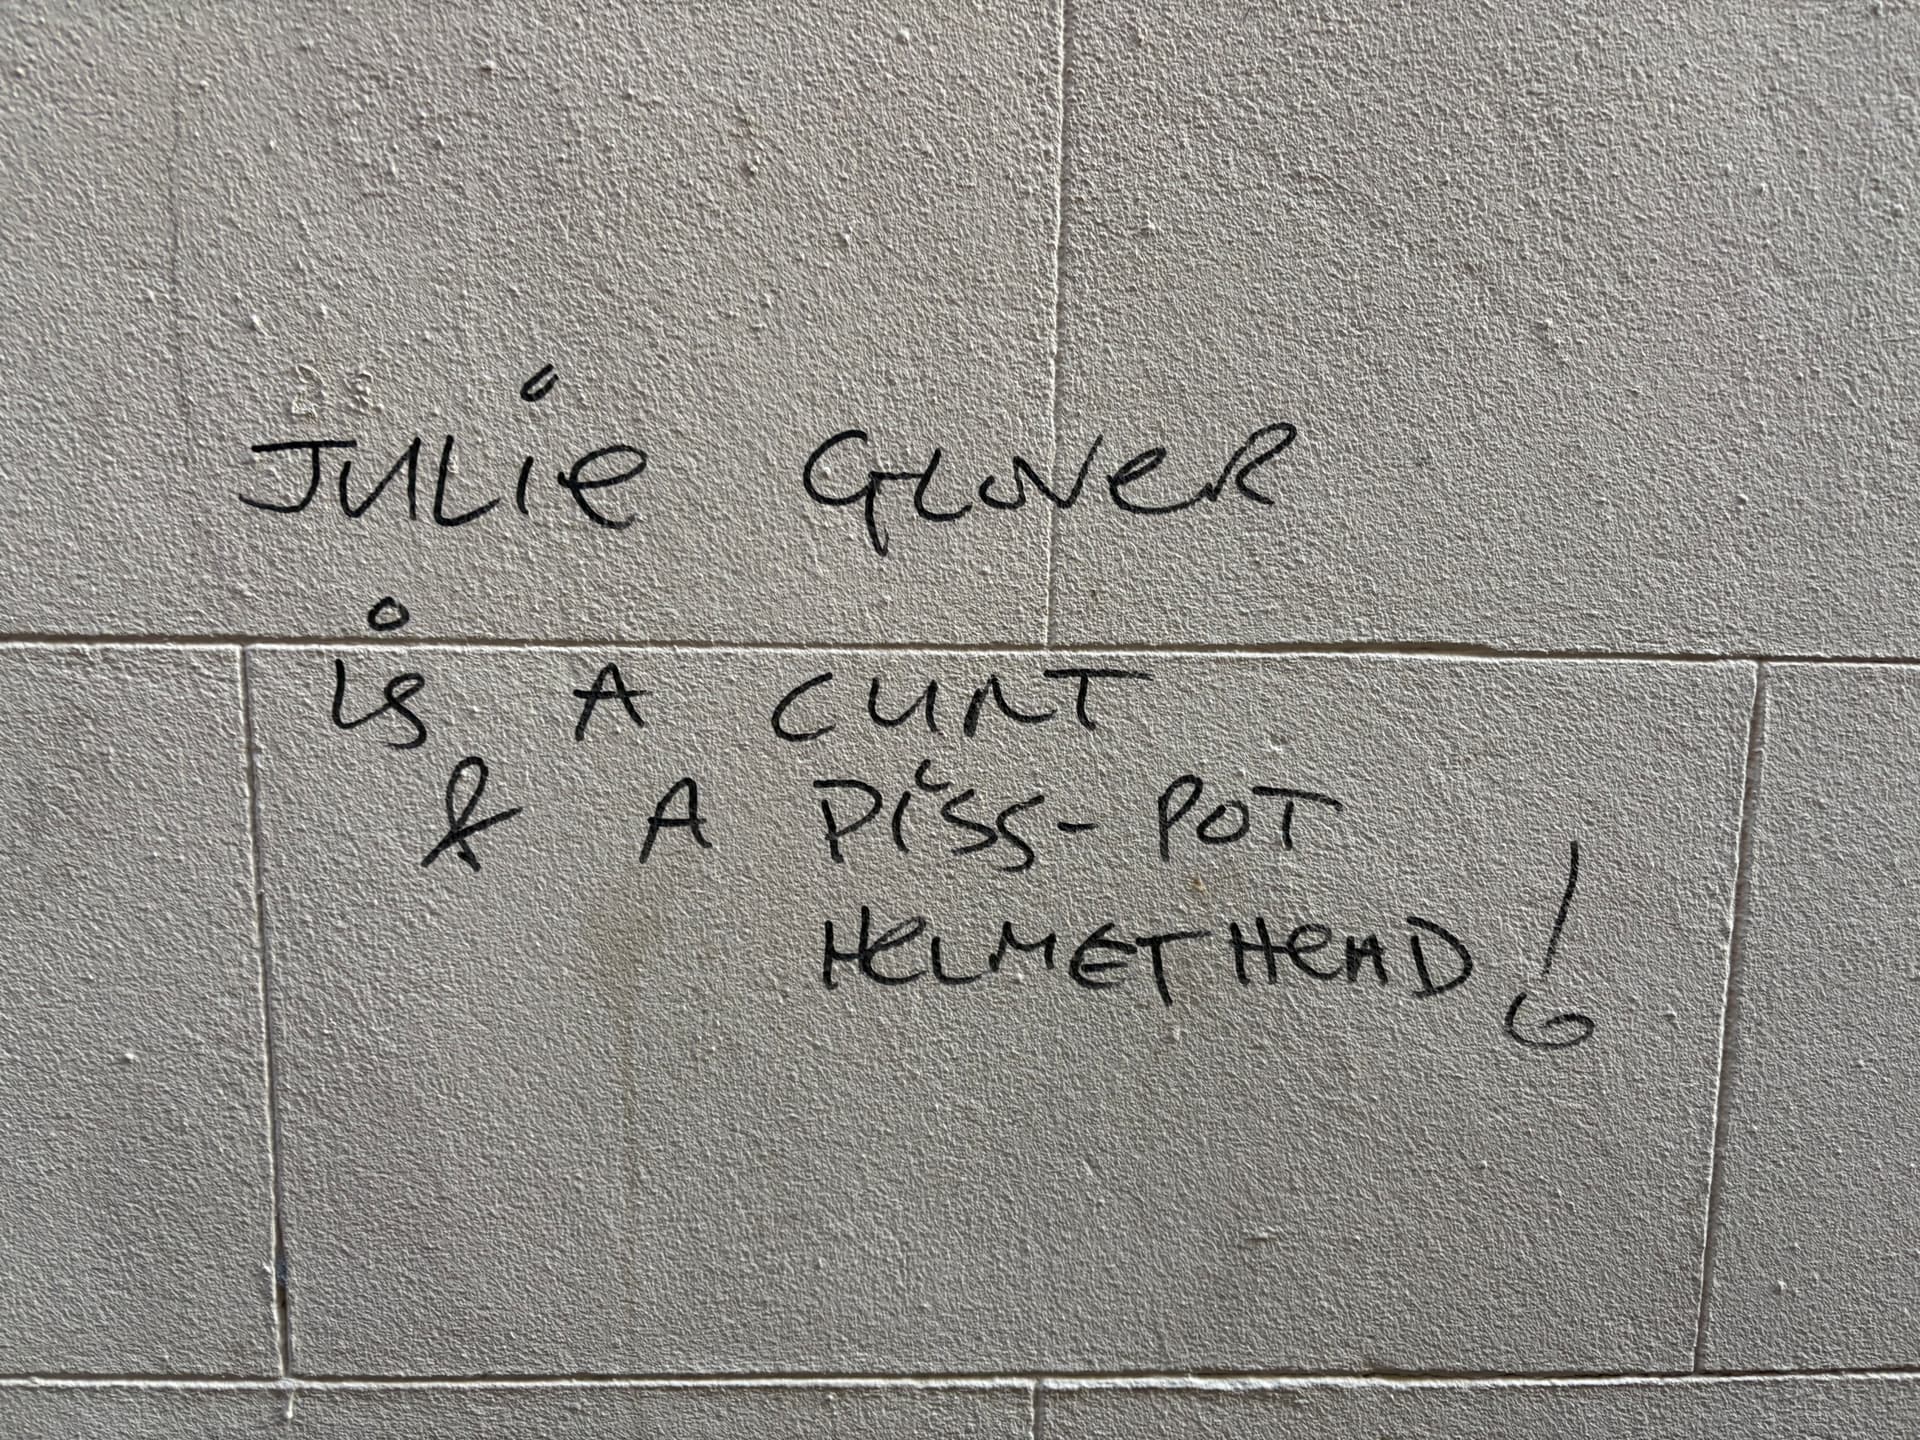 JULiE GLOVER
iS A CUNT
& A PiSS-POT
HELMETHEAD!